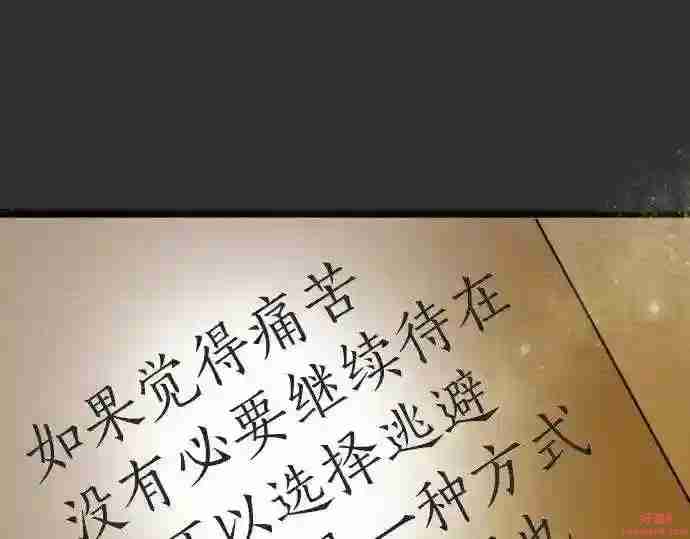 如果觉得痛苦
没有必要继续待在
可以选择逃避
一种方式
也